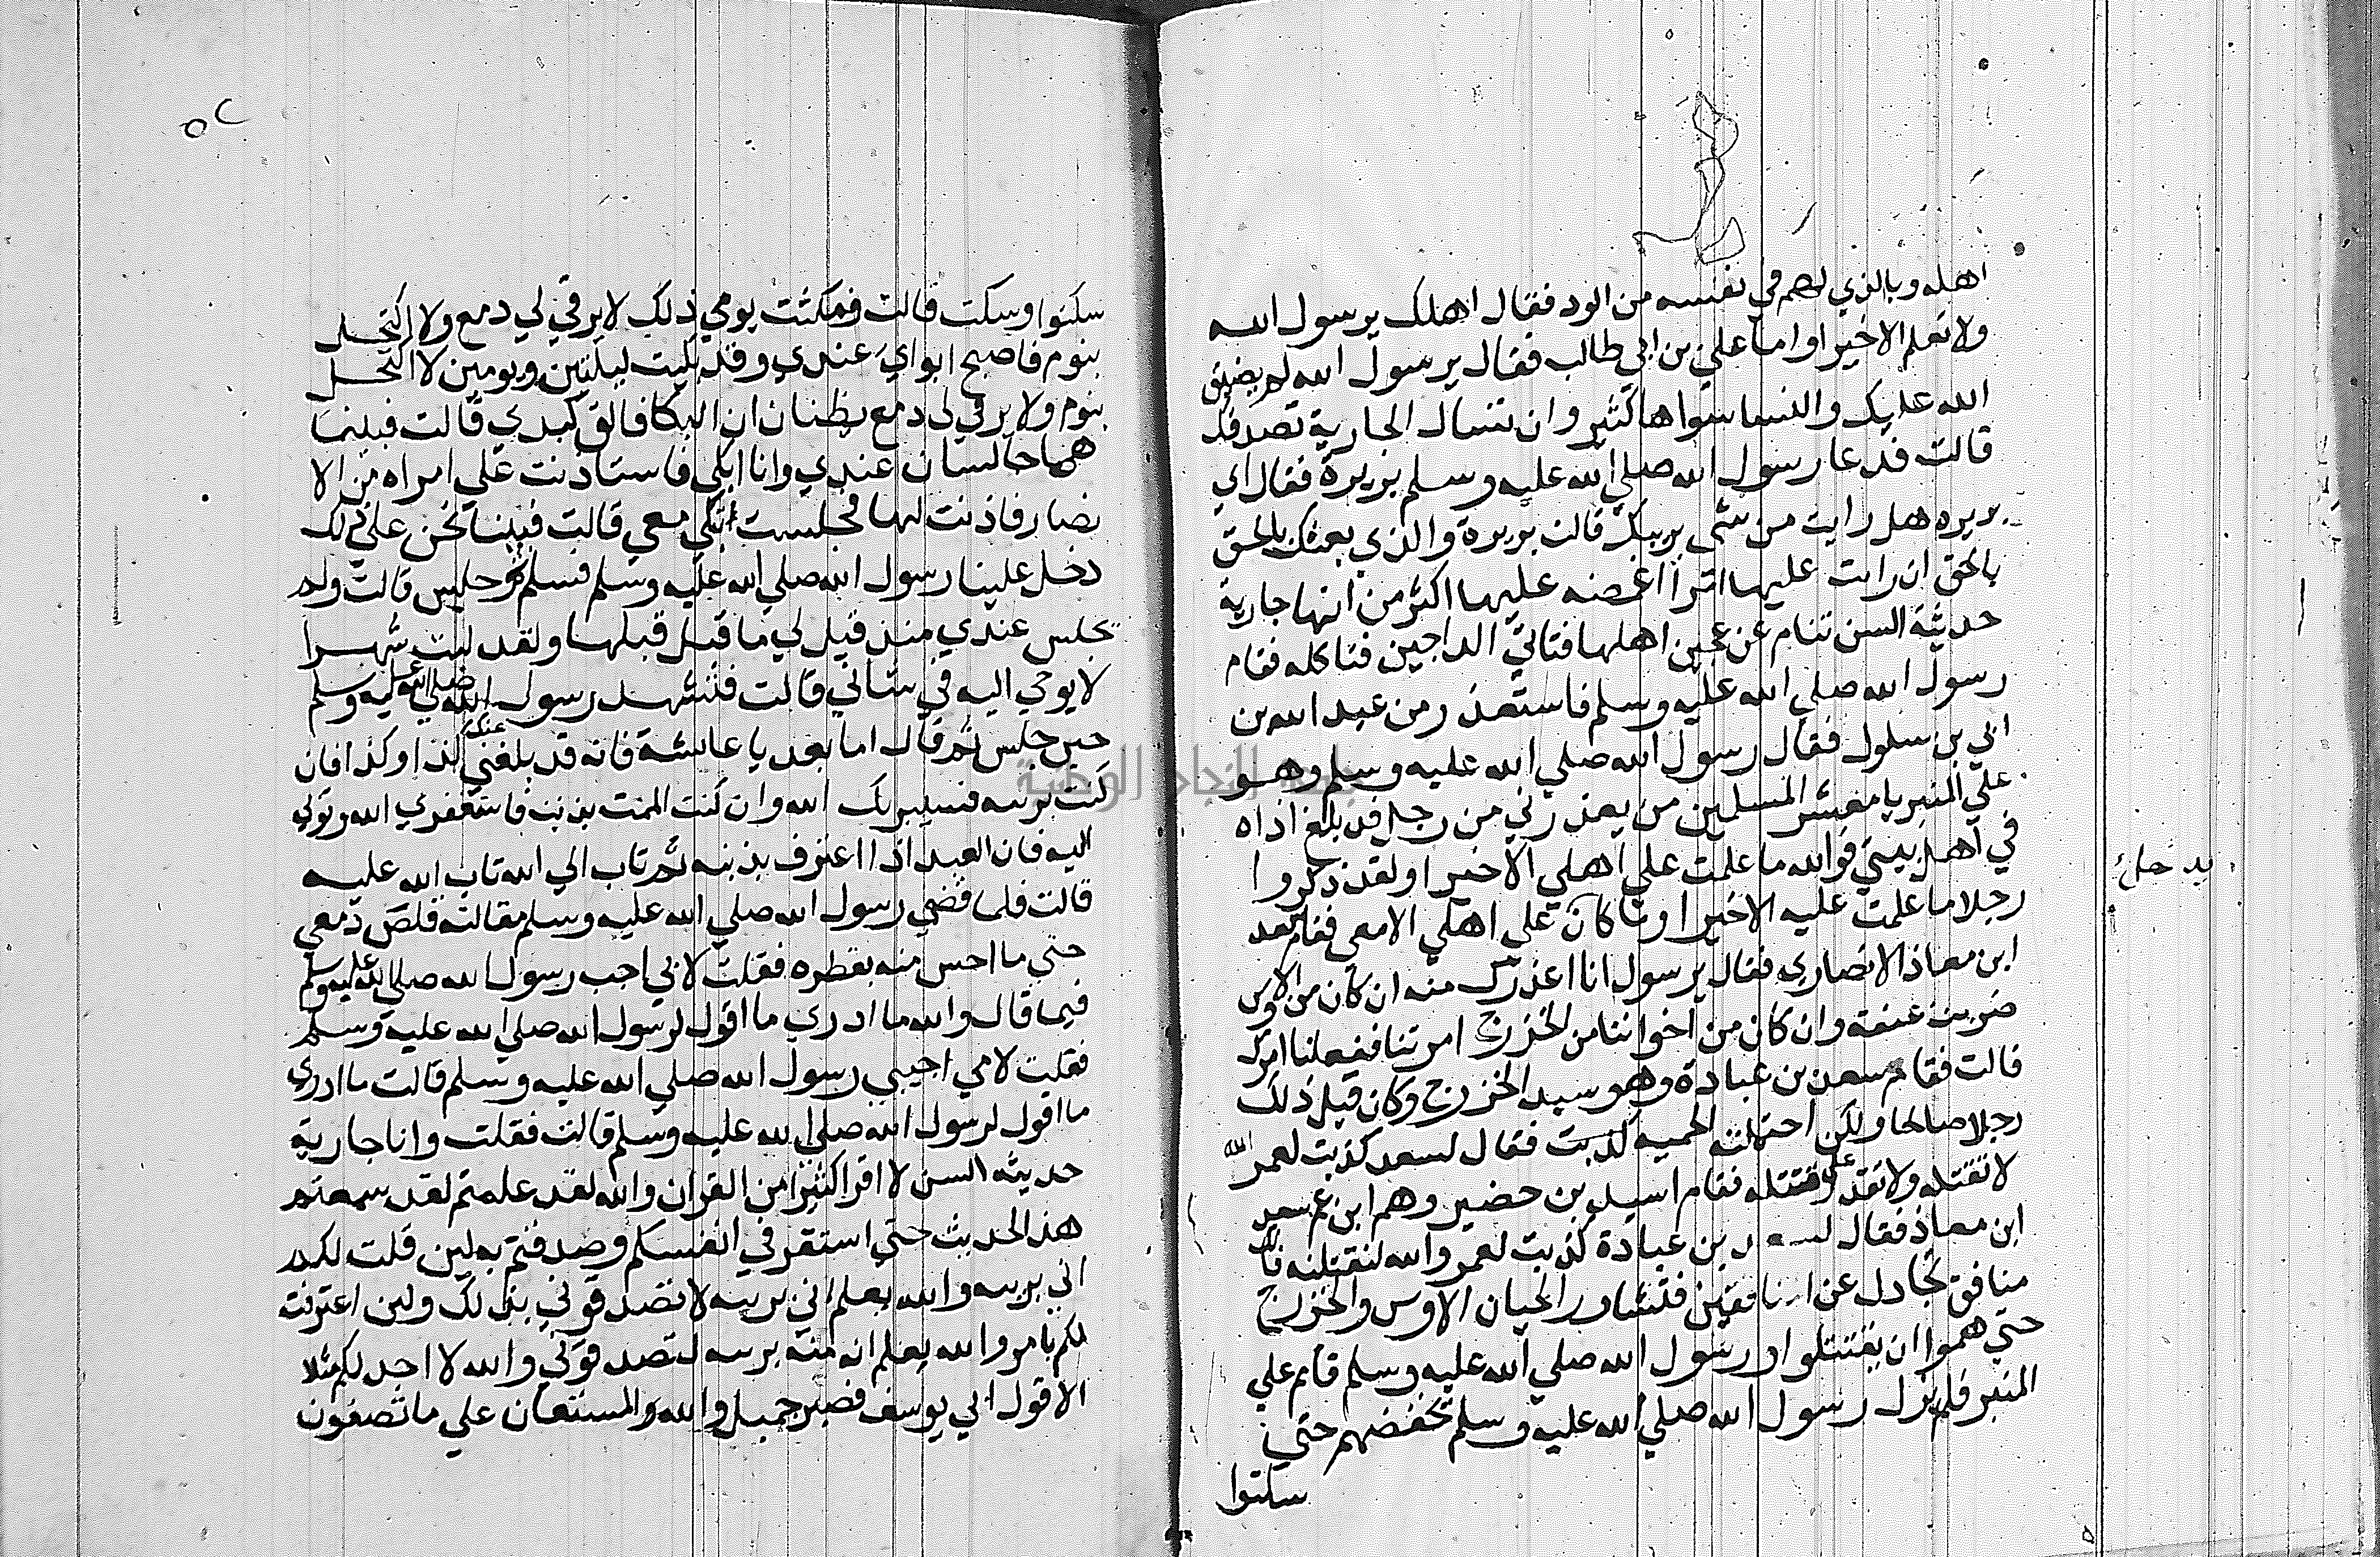 اهله وبالذي لهم في نفسه من الود فقال اهلك يرسول الله
ولا نعلم الا خيرا واما علي بن ابي طالب فقال يرسول الله لم يضيق
الله عليك والنسا سواها كثير وان تسال الجارية تصدقك
قالت فدعا رسول الله صلي الله عليه وسلم بريرة فقال اي
بريره هل رايت من شي يريبك قالت بريرة والذي بعثك بالحق
بالحق ان رايت عليها امرا اغمصه عليها اكثر من انها جارية
حديثة السن تنام عن عجين اهلها فتاتي الداجين فتاكله فقام
رسول الله صلي الله عليه وسلم فاستعذر من عبد الله بن
ابي بن سلول فقال رسول الله صلي الله عليه وسلم وهو
علي المنبر يا معشر المسلمين من يعذرني من رجل قد بلغ اذاه
في اهل بيتي فوالله ما علمت علي اهلي الا خيرا ولقد ذكروا
رجلا ما علمت عليه الا خيرا وما كان علي اهلي الا معي فقام سعد
ابن معاذ الانصاري فقال يرسول انا اعذرك منه ان كان من الاوس
ضربت عنقه وان كان من اخواننا من الخزرج امرتنا ففعلنا امرك
قالت فقام سعد بن عبادة وهو سيد الخزرج وكان قبل ذلك
رجلا صالحا ولكن احتملته الحميه كذبت فقال لسعد كذبت لعمر الله
لا تقتله ولا تقدر علي قتله فقام اسيد بن حضير وهم ابن عم سعد
ابن معاذ فقال لسعد بن عبادة كذبت لعمر والله لنقتلنه فانك
منافق تجادل عن المنافقين فتثاور الحيان الاوس والخزرج
حتي هموا ان يقتتلوا ورسول الله صلي الله عليه وسلم قايم علي
المنبر فلم يزل رسول الله صلي الله عليه وسلم يخفضهم حتي
سكتوا
٥٢
سكتوا وسكت قالت فمكثت يومي ذلك لا يرقي لي دمع ولا اكتحل
بنوم فاصبح ابواي عندي وقد بكيت ليلتين ويومين لا اكتحل
بنوم ولا يرقي لي دمع يظنان ان البكا فالق كبدي قالت فبينما
هما جالسان عندي وانا ابكي فاستاذنت علي امراه من الا
نصار فاذنت لها فجلست تبكي معي قالت فبينا نحن علي ذلك
دخل علينا رسول الله صلي الله عليه وسلم فسلم ثم جلس قالت ولم
يجلس عندي منذ قيل لي ما قيل قبلها ولقد لبث شهرا
لا يوحي اليه في شاني قالت فتشهد رسول الله صلي الله عليه وسلم
حين جلس ثم قال اما بعد يا عائشة فانه قد بلغني عنك كذا وكذا فان
كنت بريه فسيبريك الله وان كنت الممت بذنب فاستغفري الله وتوبي
اليه فان العبد اذا اعترف بذنبه ثم تاب الي الله تاب الله عليه
قالت فلما قضي رسول الله صلي الله عليه وسلم مقالته قلص دمعي
حتي ما احس منه بقطره فقلت لابي اجب رسول الله صلي الله عليه وسلم
فيما قال والله ما ادري ما اقول لرسول الله صلي الله عليه وسلم
فقلت لامي اجيبي رسول الله صلي الله عليه وسلم قالت ما ادري
ما اقول لرسول الله صلي الله عليه وسلم قالت فقلت وانا جارية
حديثه السن لا اقرا كثيرا من القران والله لقد علمتم لقد سمعتم
هذا الحديث حتي استقر في انفسكم وصدقتم به لين قلت لكم
اني بريه والله يعلم اني بريه لا تصدقوني بذلك ولين اعترفت
لكم بامر والله يعلم انه منه بريه لتصدقوني والله لا اجد لكم مثلا
الا قول ابي يوسف فصبر جميل والله المستعان علي ما تصفون
جامعة النجاح الوطنية